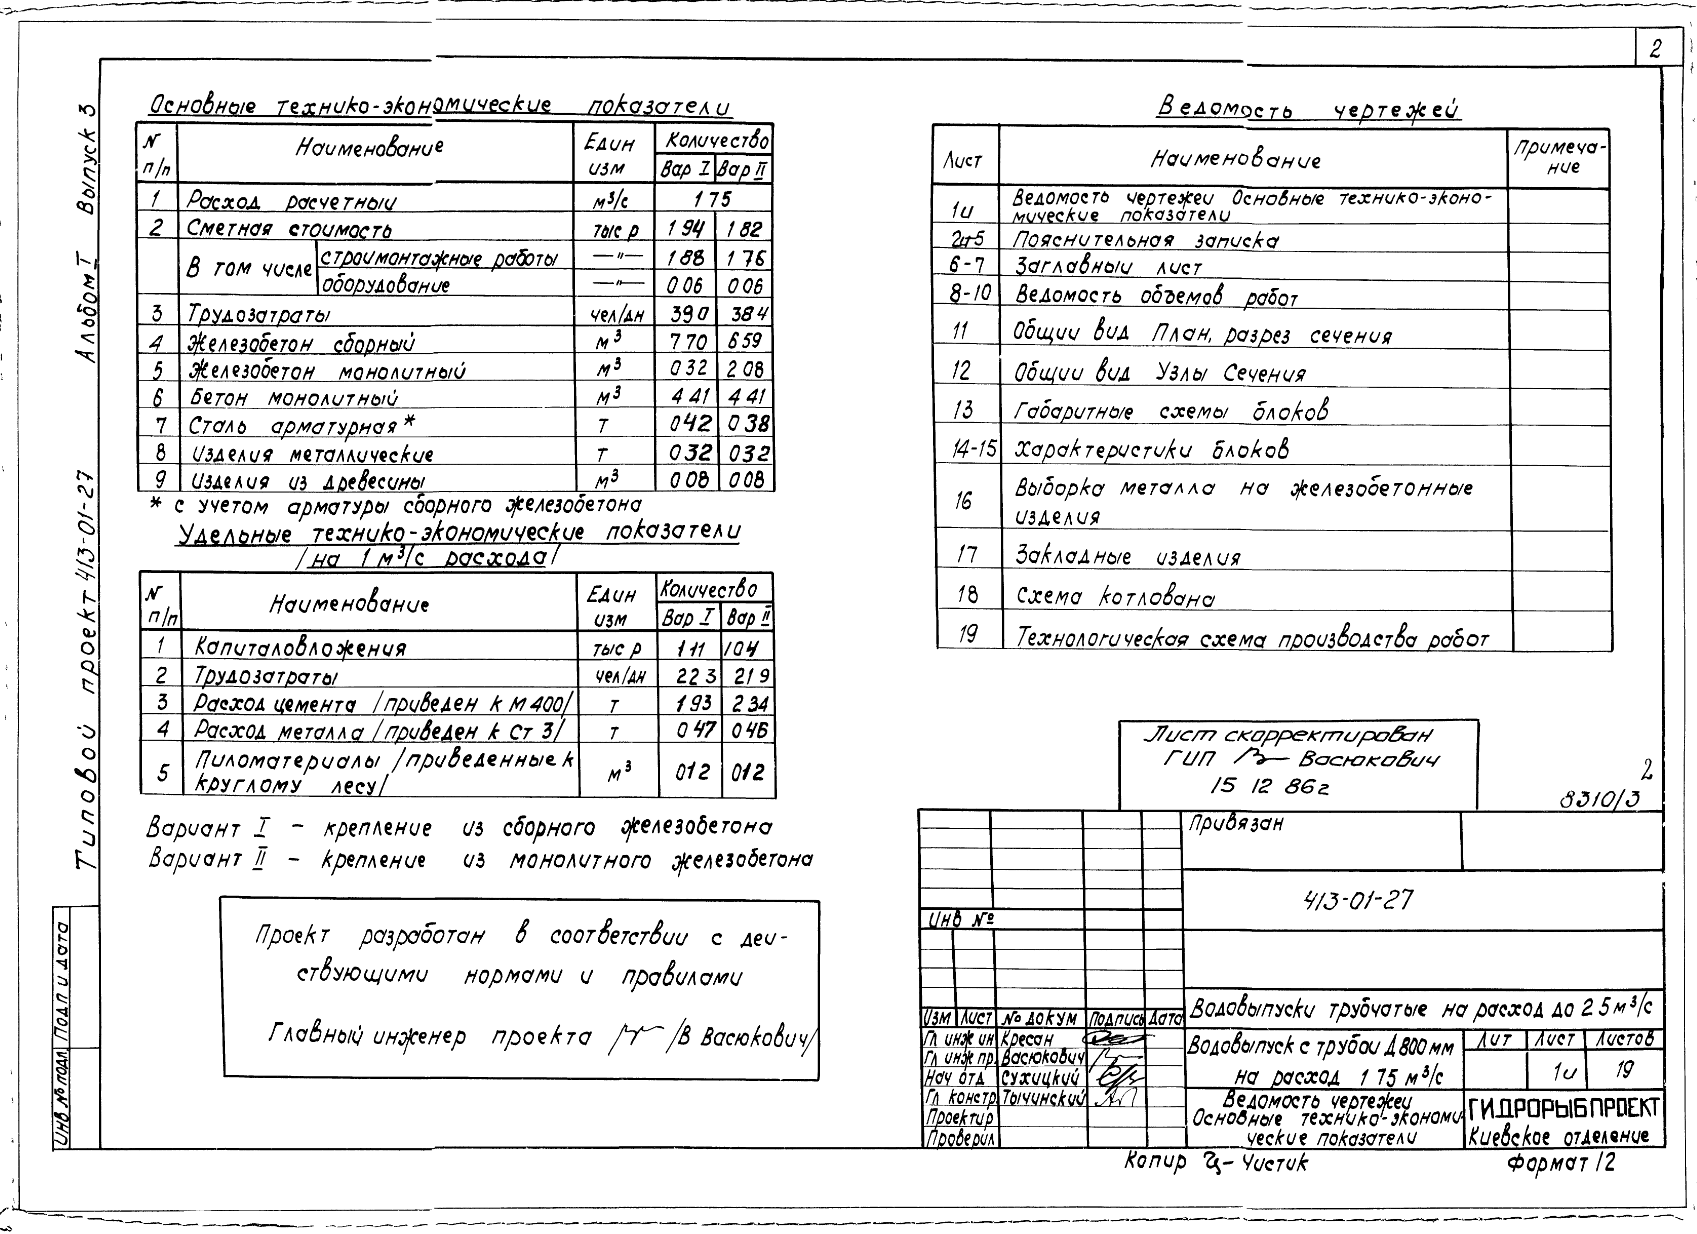 2
Типовой проект 413-01-27 Альбом I Выпуск 3
Основные технико-экономические показатели
N п/п Наименование Един изм Количество
Вар I Вар II
1 Расход расчетный м³/с 1 75
2 Сметная стоимость тыс р 1 94 1 82
В том числе строимонтажные работы —"— 1 88 1 76
оборудование —"— 0 06 0 06
3 Трудозатраты чел/дн 39 0 38 4
4 Железобетон сборный м³ 7 70 6 59
5 Железобетон монолитный м³ 0 32 2 08
6 Бетон монолитный м³ 4 41 4 41
7 Сталь арматурная * т 0 42 0 38
8 Изделия металлические т 0 32 0 32
9 Изделия из древесины м³ 0 08 0 08
* с учетом арматуры сборного железобетона
Удельные технико-экономические показатели
/на 1 м³/с расхода/
N п/п Наименование Един изм Количество
Вар I Вар II
1 Капиталовложения тыс р 1 11 1 04
2 Трудозатраты чел/дн 22 3 21 9
3 Расход цемента /приведен к М 400/ т 1 93 2 34
4 Расход металла /приведен к Ст 3/ т 0 47 0 46
5 Пиломатериалы /приведенные к
круглому лесу/ м³ 0 12 0 12
Вариант I – крепление из сборного железобетона
Вариант II – крепление из монолитного железобетона
Проект разработан в соответствии с деи-
ствующими нормами и правилами
Главный инженер проекта /В Васюкович/
Ведомость чертежей
Лист Наименование Примеча-
ние
1и Ведомость чертежеи Основные технико-эконо-
мические показатели
2и-5 Пояснительная записка
6-7 Заглавныи лист
8-10 Ведомость объемов работ
11 Общии вид План, разрез сечения
12 Общии вид Узлы Сечения
13 Габаритные схемы блоков
14-15 Характеристики блоков
16 Выборка металла на железобетонные
изделия
17 Закладные изделия
18 Схема котлована
19 Технологическая схема производства работ
Лист скорректирован
ГИП Васюкович
15 12 86г
2
8310/3
Привязан
413-01-27
Инв №
Водовыпуски трубчатые на расход до 2 5 м³/с
Изм Лист № докум Подпись Дата
Гл инж ин Кресан
Гл инж пр. Васюкович
Нач отд Сухицкий
Гл констр Тычинский
Проектир
Проверил
Водовыпуск с трубои Д 800 мм
на расход 1 75 м³/с
Лит Лист Листов
1и 19
Ведомость чертежеи
Основные технико-экономи
ческие показатели
ГИДРОРЫБПРОЕКТ
Киевское отделение
Копир Чистик
Формат 12
Инв № подл. Подп и дата